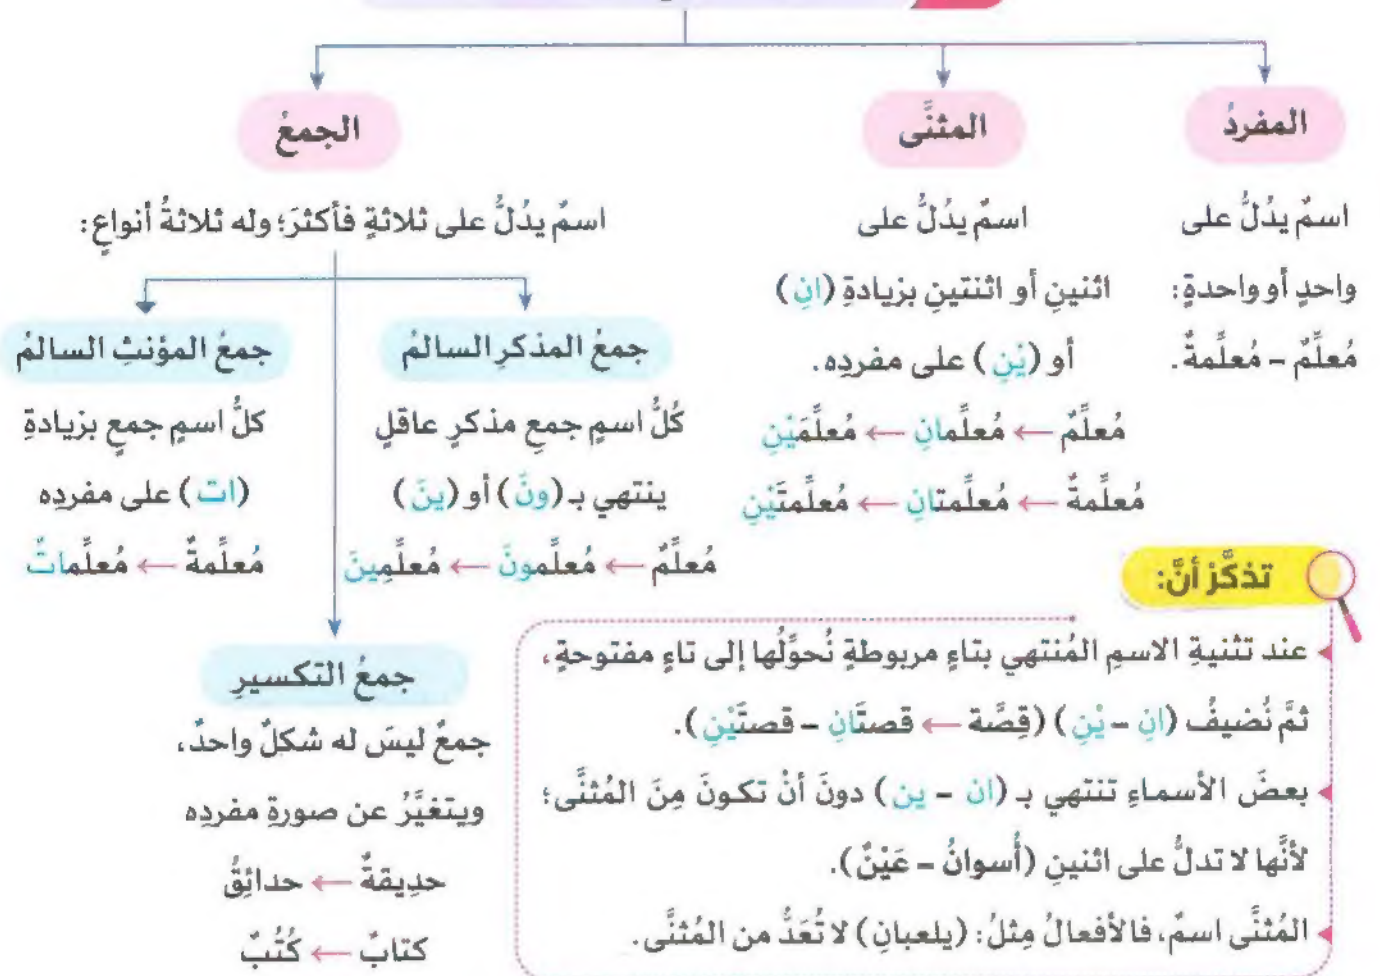 المفردُ
اسمٌ يدُلُّ على
واحدٍ أو واحدةٍ:
مُعلِّمٌ - مُعلِّمةٌ.
المثنَّى
اسمٌ يدُلُّ على
اثنينِ أو اثنتينِ بزيادةِ (انِ)
أو (يْنِ) على مفردِه.
مُعلِّمٌ ← مُعلِّمانِ ← مُعلِّمَيْنِ
مُعلِّمةٌ ← مُعلِّمتانِ ← مُعلِّمتَيْنِ
الجمعُ
اسمٌ يدُلُّ على ثلاثةٍ فأكثرَ؛ وله ثلاثةُ أنواعٍ:
جمعُ المذكرِ السالمُ
كُلُّ اسمٍ جمعِ مذكرٍ عاقلٍ
ينتهي بـ (ونَ) أو (ينَ)
مُعلِّمٌ ← مُعلِّمونَ ← مُعلِّمِينَ
جمعُ المؤنثِ السالمُ
كلُّ اسمٍ جمعٍ بزيادةِ
(ات) على مفردِه
مُعلِّمةٌ ← مُعلِّماتٌ
جمعُ التكسيرِ
جمعٌ ليسَ له شكلٌ واحدٌ،
ويتغيَّرُ عن صورةِ مفردِه
حدِيقةٌ ← حدائِقُ
كتابٌ ← كُتُبٌ
تذكَّرْ أنَّ:
عند تثنيةِ الاسمِ المُنتهي بتاءٍ مربوطةٍ نُحوِّلُها إلى تاءٍ مفتوحةٍ،
ثمَّ نُضيفُ (انِ - يْنِ) (قِصَّة ← قصتَانِ - قصتَيْنِ).
بعضَ الأسماءِ تنتهي بـ (ان - ين) دونَ أنْ تكونَ مِنَ المُثنَّى؛
لأنَّها لا تدلُّ على اثنينِ (أُسوانُ - عَيْنٌ).
المُثنَّى اسمٌ، فالأفعالُ مِثلُ: (يلعبانِ) لا تُعَدُّ من المُثنَّى.